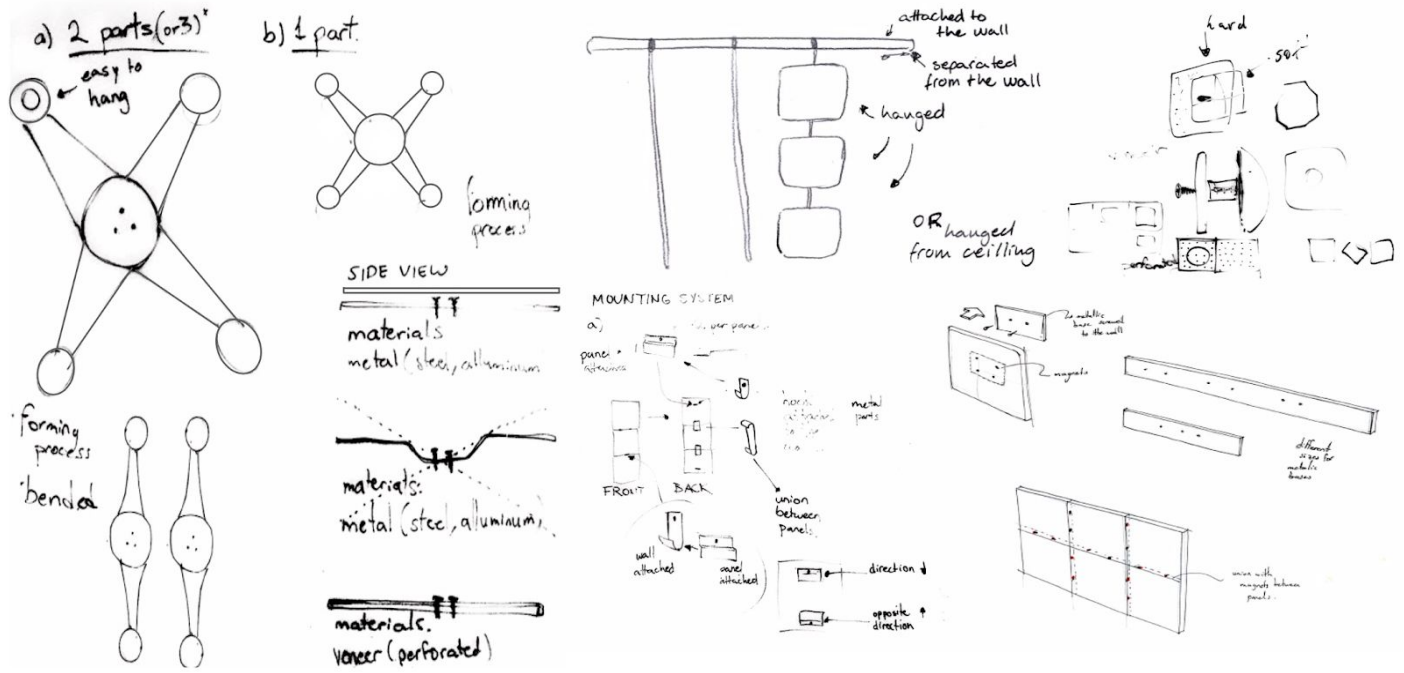 a) 2 parts (or 3)*
easy to
hang
b) 1 part.
forming
process
SIDE VIEW
materials
metal (steel, alluminium
materials:
metal (steel, alluminium,
materials.
veneer (perforated)
forming
process
bended
attached to
the wall
separated
from the wall
hanged
OR hanged
from ceilling
hard
perforated
MOUNTING SYSTEM
a)
panel
metal
parts
FRONT
BACK
union
between
panels.
wall
attached
panel
attached
direction
opposite
direction
metallic
base screwed
to the wall
magnets
different
sizes for
metallic
bases
union with
magnets between
panels.